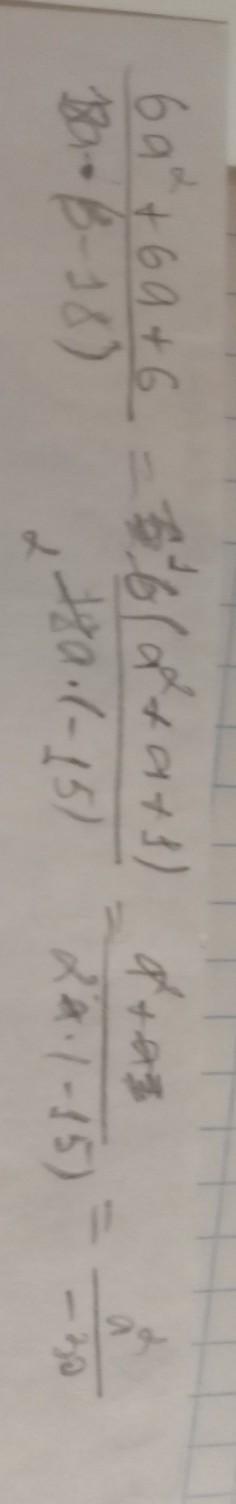 6a² + 6a + 6 / 12a · (3 - 18) = 6(a² + a + 1) / 12a · (-15) = a² + a + 1 / 2a · (-15) = a² / -30